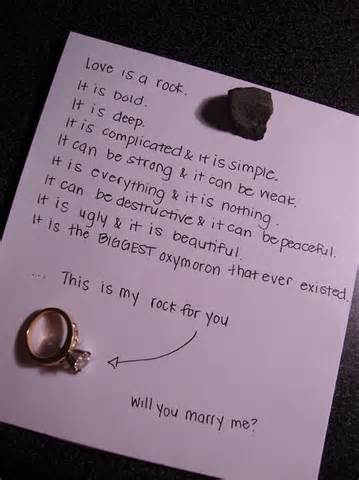 Love is a rock.
It is bold.
It is deep.
It is complicated & It is simple.
It can be strong & it can be weak.
It is everything & it is nothing.
It can be destructive & it can be peaceful.
It is ugly & it is beautiful.
It is the BIGGEST oxymoron that ever existed.
... This is my rock for you
Will you marry me?